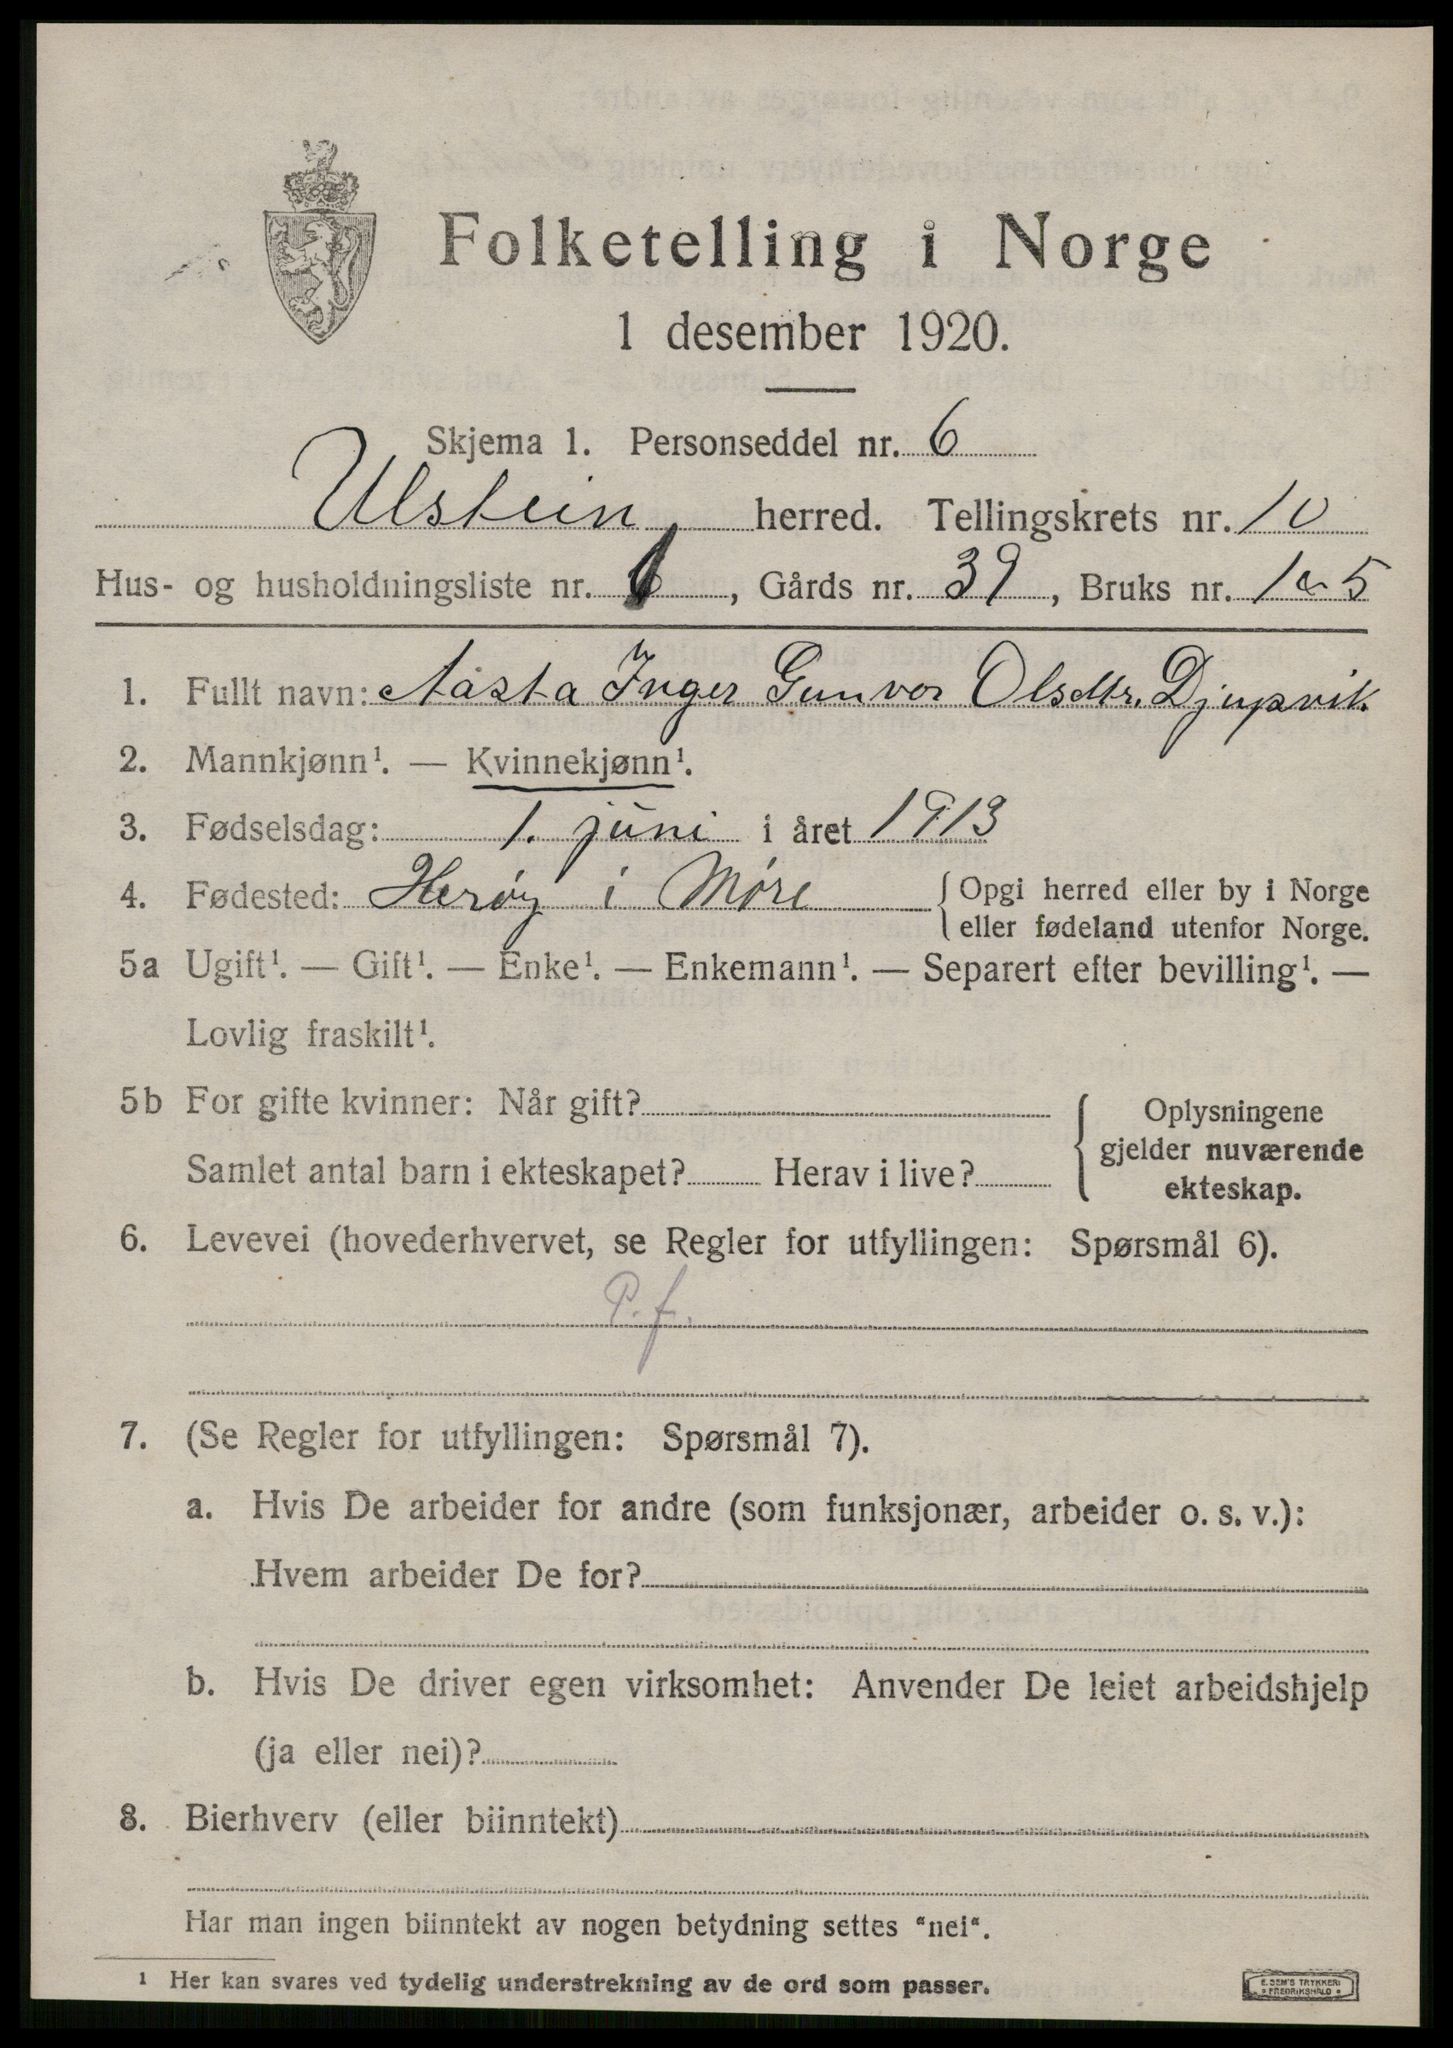 Folketelling i Norge
1 desember 1920.
Skjema 1. Personseddel nr. 6
Ulstein herred. Tellingskrets nr. 10
Hus- og husholdningsliste nr. 1, Gårds nr. 39, Bruks nr. 1 a 5
1. Fullt navn: Aasta Inger Gunvor Olsdtr. Djupvik.
2. Mannkjønn¹. — Kvinnekjønn¹.
3. Fødselsdag: 1. juni i året 1913
4. Fødested: Herøy i Møre { Opgi herred eller by i Norge
eller fødeland utenfor Norge.
5a Ugift¹. — Gift¹. — Enke¹. — Enkemann¹. — Separert efter bevilling¹. —
Lovlig fraskilt¹.
5b For gifte kvinner: Når gift?
Samlet antal barn i ekteskapet? Herav i live?
{ Oplysningene
gjelder nuværende
ekteskap.
6. Levevei (hovederhvervet, se Regler for utfyllingen: Spørsmål 6).
P. f.
7. (Se Regler for utfyllingen: Spørsmål 7).
a. Hvis De arbeider for andre (som funksjonær, arbeider o. s. v.):
Hvem arbeider De for?
b. Hvis De driver egen virksomhet: Anvender De leiet arbeidshjelp
(ja eller nei)?
8. Bierhverv (eller biinntekt)
Har man ingen biinntekt av nogen betydning settes "nei".
¹ Her kan svares ved tydelig understrekning av de ord som passer.
E. SEM'S TRYKKERI
FREDRIKSHALD